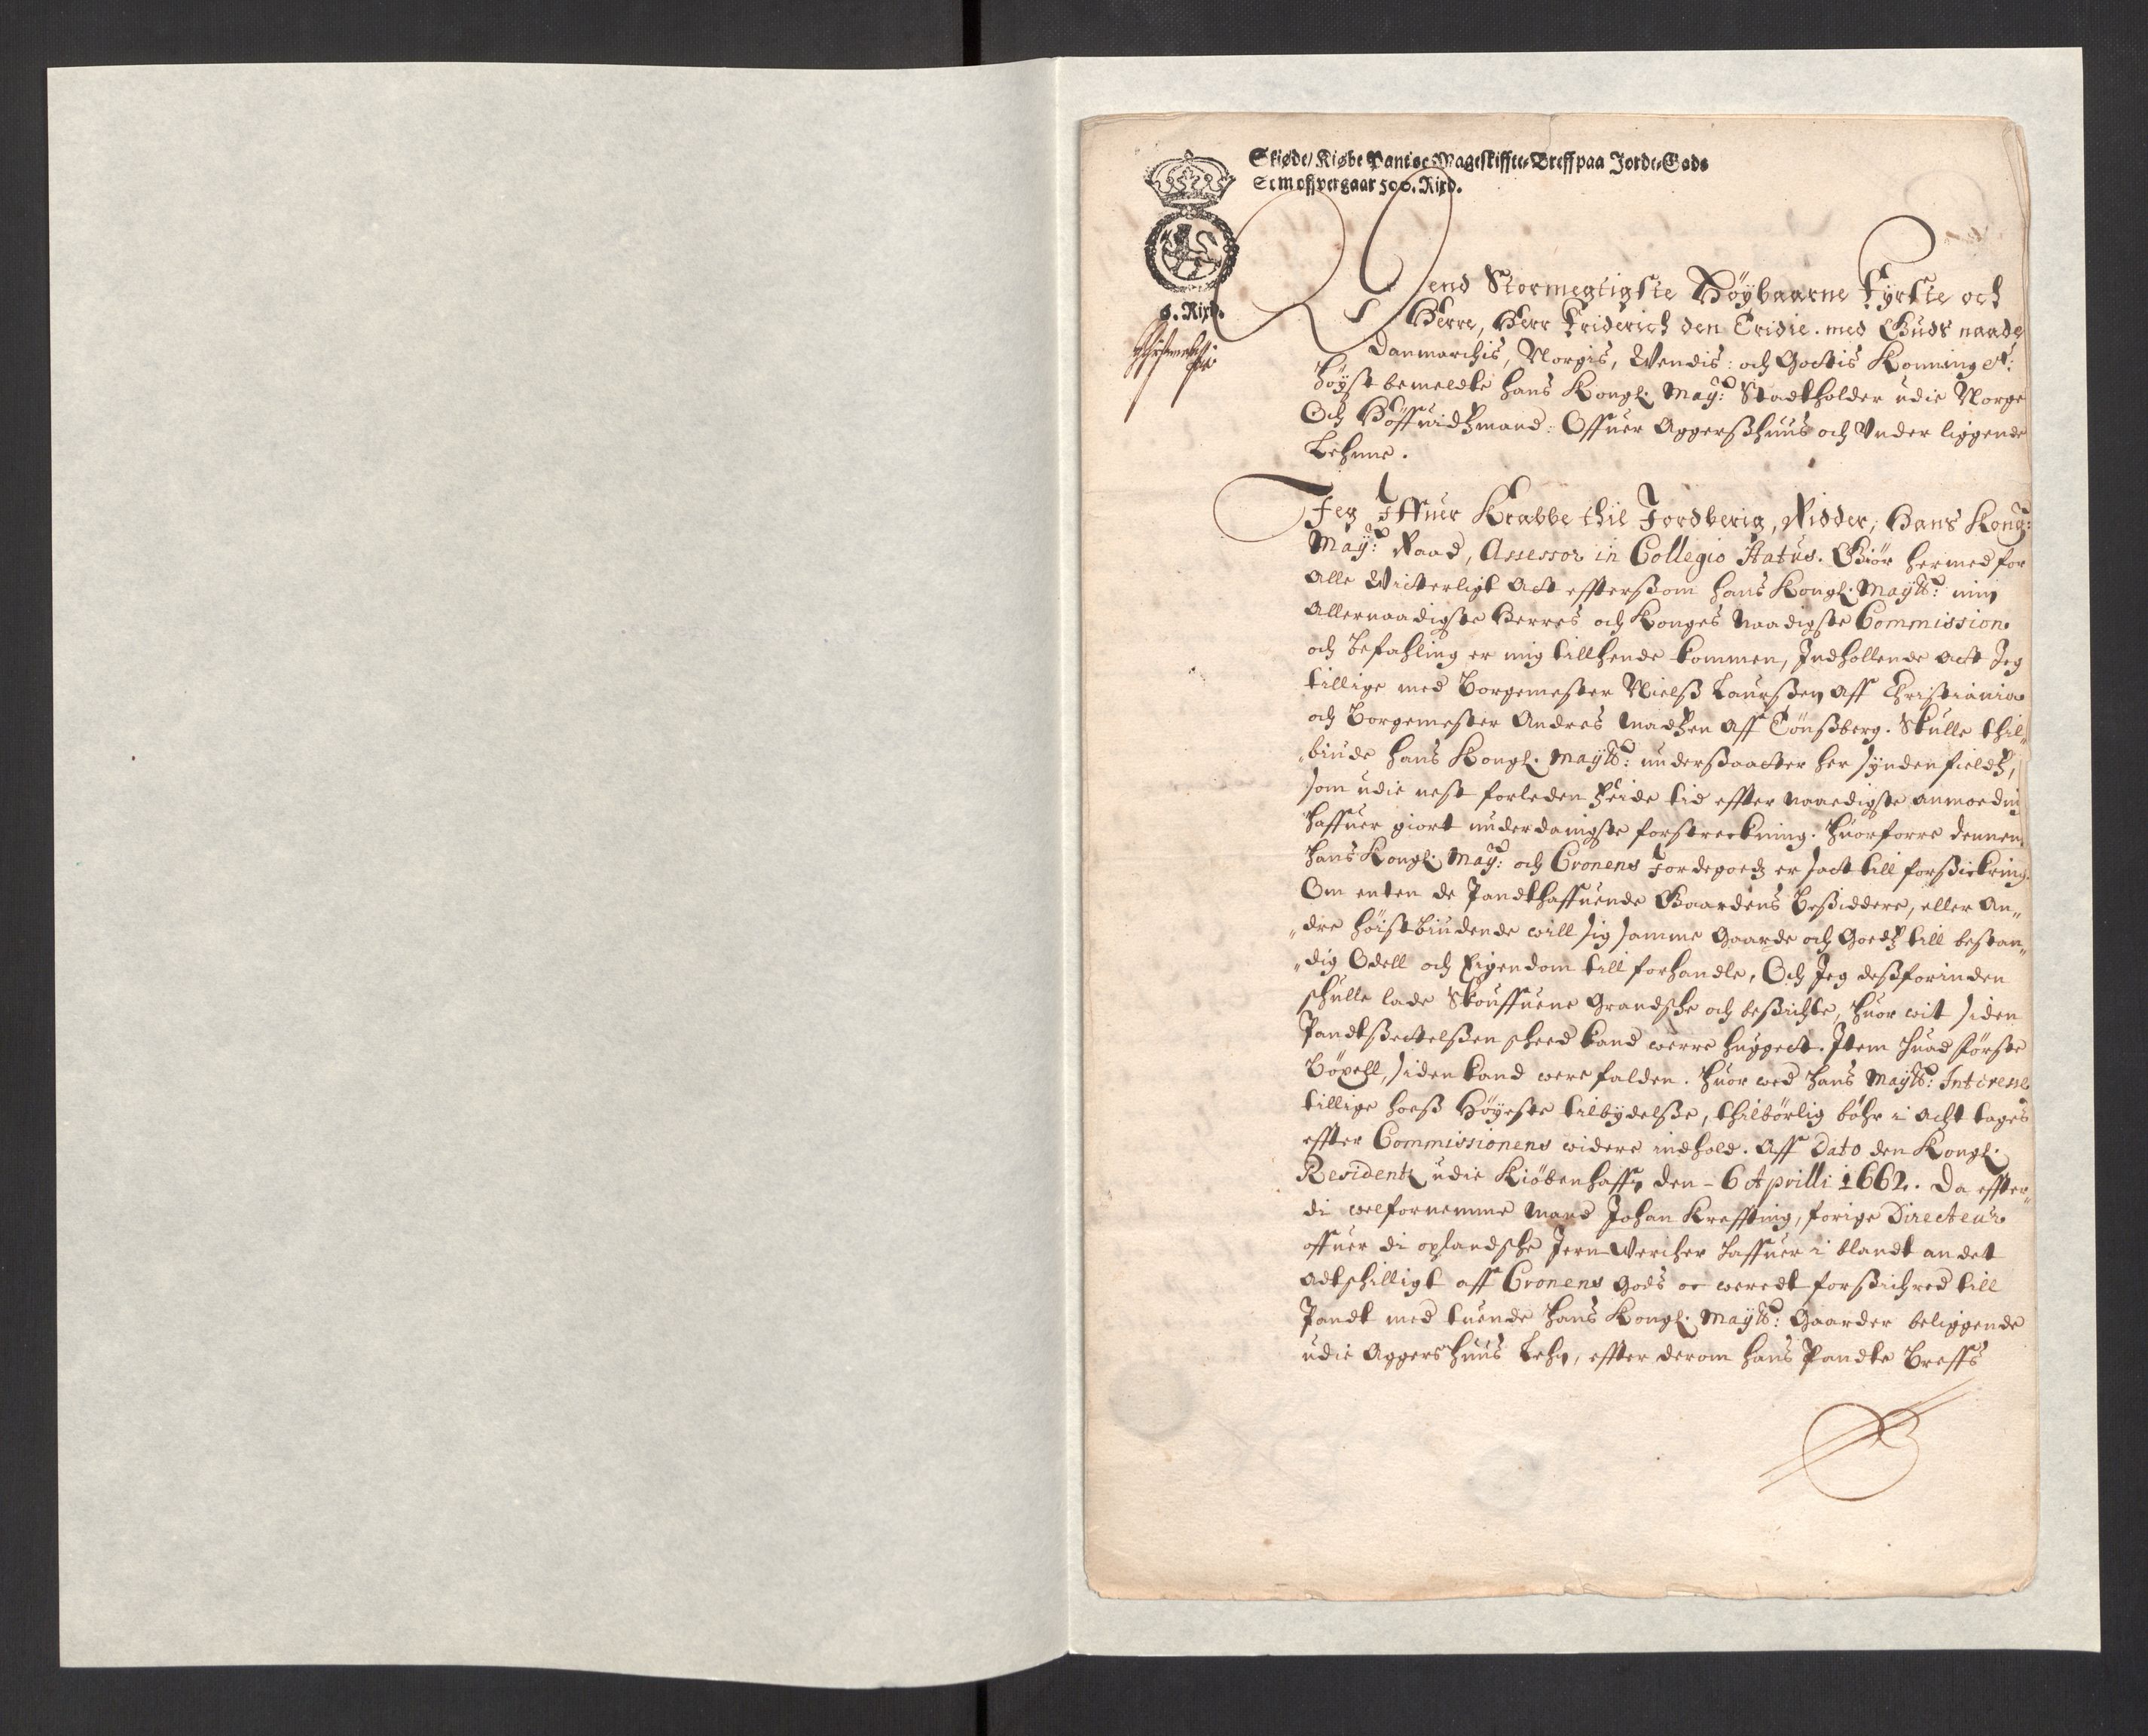 Skiøde/ Kiøbe Pante oc Mageskifftes Breff paa Jorde-Gods
Som offvergaar 500. Rixd.
6. Rixd.
Dend Stormegtigste Höybaarne Fyrste och
Herre, Herr Friderich den Tridie. med Guds naade
Danmarchis, Norgis, Wendis: och Gottis Konning &c:
höyst bemeldte hans Kongl: May:tt Stadtholder udie Norge
Och Höffuidtzmand: Offuer Aggerßhuus och Under liggende
Lehnne.
Jeg Iffuer Krabbe thil Jordberig, Ridder, Hans Kong:
May:tt Raad, Assessor in Collegio Status. Giör hermed for
alle Witterligt Att effterßom hans Kongl: Maytt: min
allernaadigste Herres och Konges Naadigste Commission
och befahling er mig tillhende kommen, Indhollende att Jeg
tillige med Borgemester Nielß Laurßen aff Christiania
och Borgemester Andres Madtzen aff Tönßberg. Skulle thil„
„biude hans Kongl: Maytt: underßaatter her synden fieldtz,
som udie nest forleden feide tid effter naadigste anmoeding
haffuer giort underdanigste forstreckning. huorforre dennem
hans Kongl: May:tt och Cronens Jordegoedz er satt till forßickring
Om enten de Pandthaffuende Gaardens Beßiddere, eller An„
„dre höistbiudende will sig samme Gaarde och Goedtz till bestan„
„dig Odell och Eigendom till forhandle, Och Jeg deßforinden
schulle lade Skouffuene Grandsche och beßichte, huor wit siden
Pandtßettelßen scheed kand werre huggett. Item huad störste
Böxell, siden kand were falden. huor wed hans Maytt: Interesse
tillige hoeß Höyeste tilbydelße, thilbörlig böhr i acht tages
effter Commissionens widere indhold. Aff Dato den Kongl:
Residentz udie Kiöbenhaffn den - 6 Aprilli 1662. Da effter„
di welfornemme mand Johan Kreffting, forige Directeur
offuer di oplandsche Jern Wercher haffuer i blandt andet
adtschilligt aff Cronens Gods oc weredt forßichred till
Pandt med tuende hans Kongl: Maytt: Gaarder beliggende
udie Aggershuus Lehn, effter derom hans Pandte Breffs